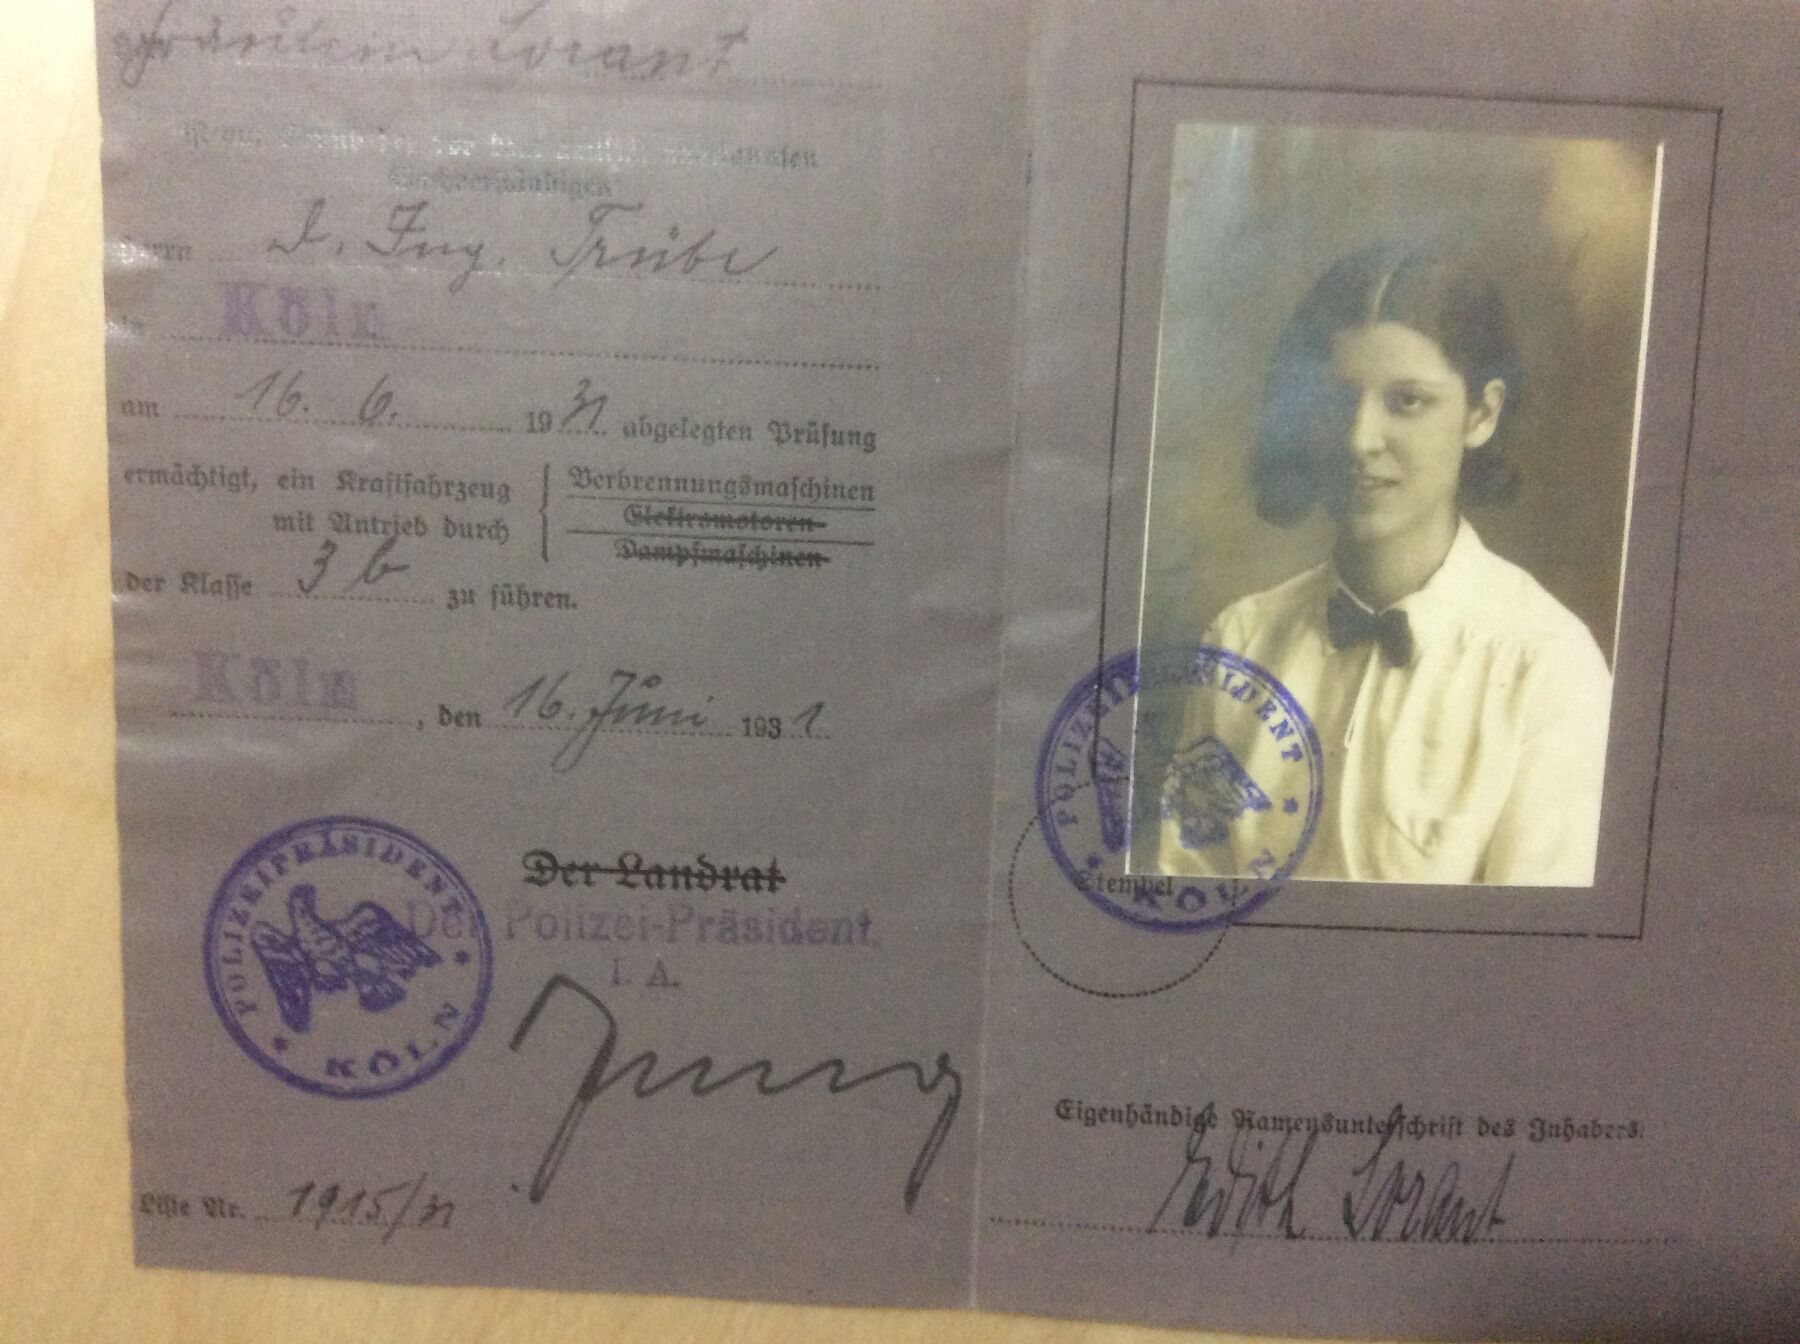 Fräulein Lorant
ist auf Grund der vor dem amtlich anerkannten
Sachverständigen
Herrn D. Ing. Trübe
in Köln
am 16. 6. 1931 abgelegten Prüfung
ermächtigt, ein Kraftfahrzeug
mit Antrieb durch
Verbrennungsmaschinen
Elektromotoren
Dampfmaschinen
der Klasse 3 b zu führen.
Köln, den 16. Juni 1931.
POLIZEIPRÄSIDENT
KÖLN
Der Landrat
Der Polizei-Präsident
I. A.
Liste Nr. 1915/31
POLIZEIPRÄSIDENT
KÖLN
Stempel
Eigenhändige Namensunterschrift des Inhabers.
Edith Lorant